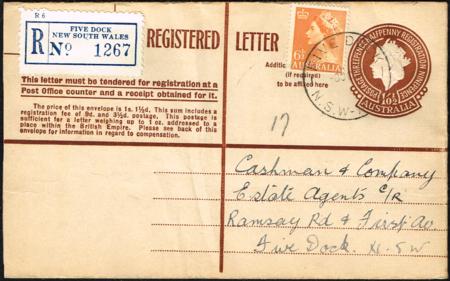 R 6
R
FIVE DOCK
NEW SOUTH WALES
No 1267
REGISTERED LETTER
This letter must be tendered for registration at a
Post Office counter and a receipt obtained for it.
The price of this envelope is 1s. 1½d. This sum includes a
registration fee of 9d. and 3½d. postage. This postage is
sufficient for a letter weighing up to 1 oz. addressed to a
place within the British Empire. Please see back of this
envelope for information in regard to compensation.
Additio
(if required)
to be affixed here
6½D
AUSTRALIA
FIVE DO
N.S.W
POSTAGE THREEPENCE HALFPENNY REGISTRATION NINEPENCE
1/0½
AUSTRALIA
17
Cashman & Company
Estate Agents C/R
Ramsay Rd & First Av
Five Dock. N.S.W